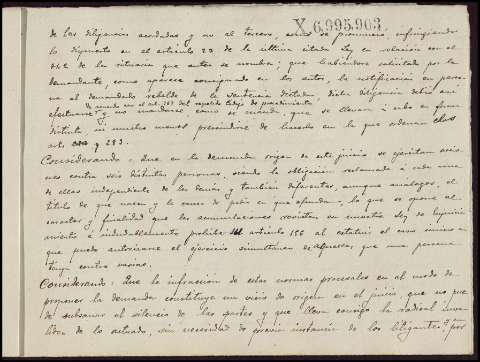 X.6,995,903
de las diligencias acordadas y no al tercero, como se pronuncia, infringiendo
lo dispuesto en el artículo 23 de la última citada Ley en relación con el
de la rituaria que antes se nombra; que habiéndose solicitado por la
demandante, como aparece consignado en los autos, la notificación en perso-
na al demandado rebelde de la sentencia dictada, dicha diligencia debió así
efectuarse y no mandarse como se manda, que se llevara á cabo en forma
distinta, ni mucho menos prescindirse de hacerlo en la que ordenan dichos
arts y 283.
Considerando: Que en la demanda origen de este juicio se ejercitan accio-
nes contra seis distintas personas, siendo la obligación reclamada á cada una
de ellas independiente de las demás y también diferentes, aunque análogos, el
título de que nacen y la causa de pedir en que se fundan, lo que se opone al
caracter y finalidad que las acumulaciones revisten en nuestra Ley de Enjuicia-
miento é indudablemente prohibe el artículo 156 al establecer el caso único en
que puede autorizarse el ejercicio simultáneo de aquellas que una persona
tenga contra varias.
Considerando: Que la infracción de estas normas procesales en el modo de
proponer la demanda constituye un vicio de origen en el juicio, que no pue-
de subsanar el silencio de las partes y que lleva consigo la radical inva-
lidez de lo actuado, sin necesidad de previa instancia de los litigantes, por